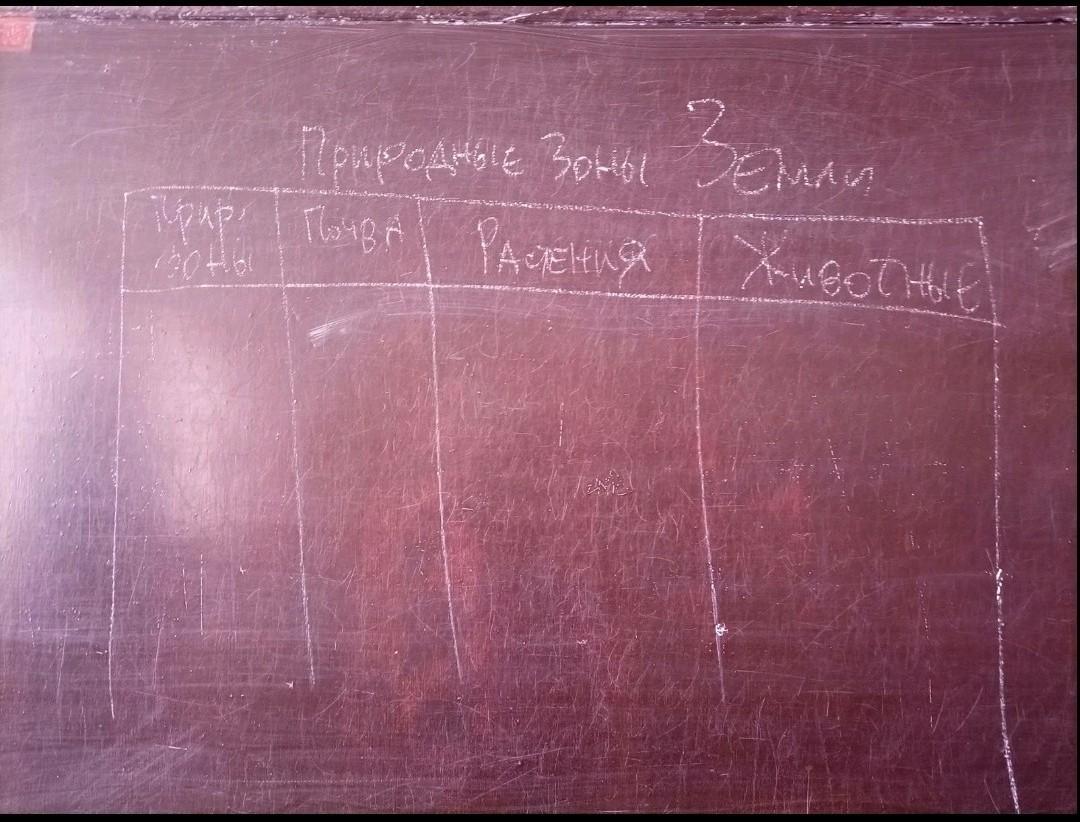 Природные Зоны Земли
Прир. зоны
Почва
Растения
Животные